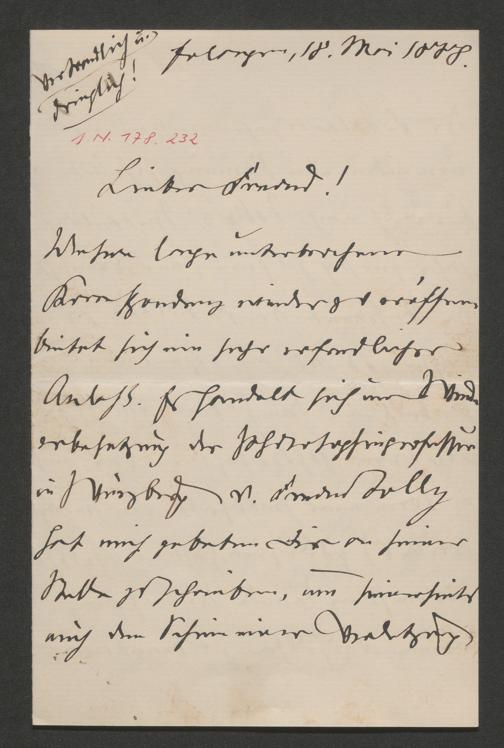 Vertraulich u.
dringlich!
Erlangen, 18. Mai 1877.
I. N. 178.232
Lieber Freund!
Unsere lange unterbrochene
Korrespondenz wieder zu eröffnen
bietet sich ein sehr erfreulicher
Anlaß. Es handelt sich um Wieder
erbesetzung der
in Würzburg u. Freund Jolly
hat mich gebeten Dir an seiner
Stelle zu schreiben, um seinerseits
auch den Schein einer Verletzung